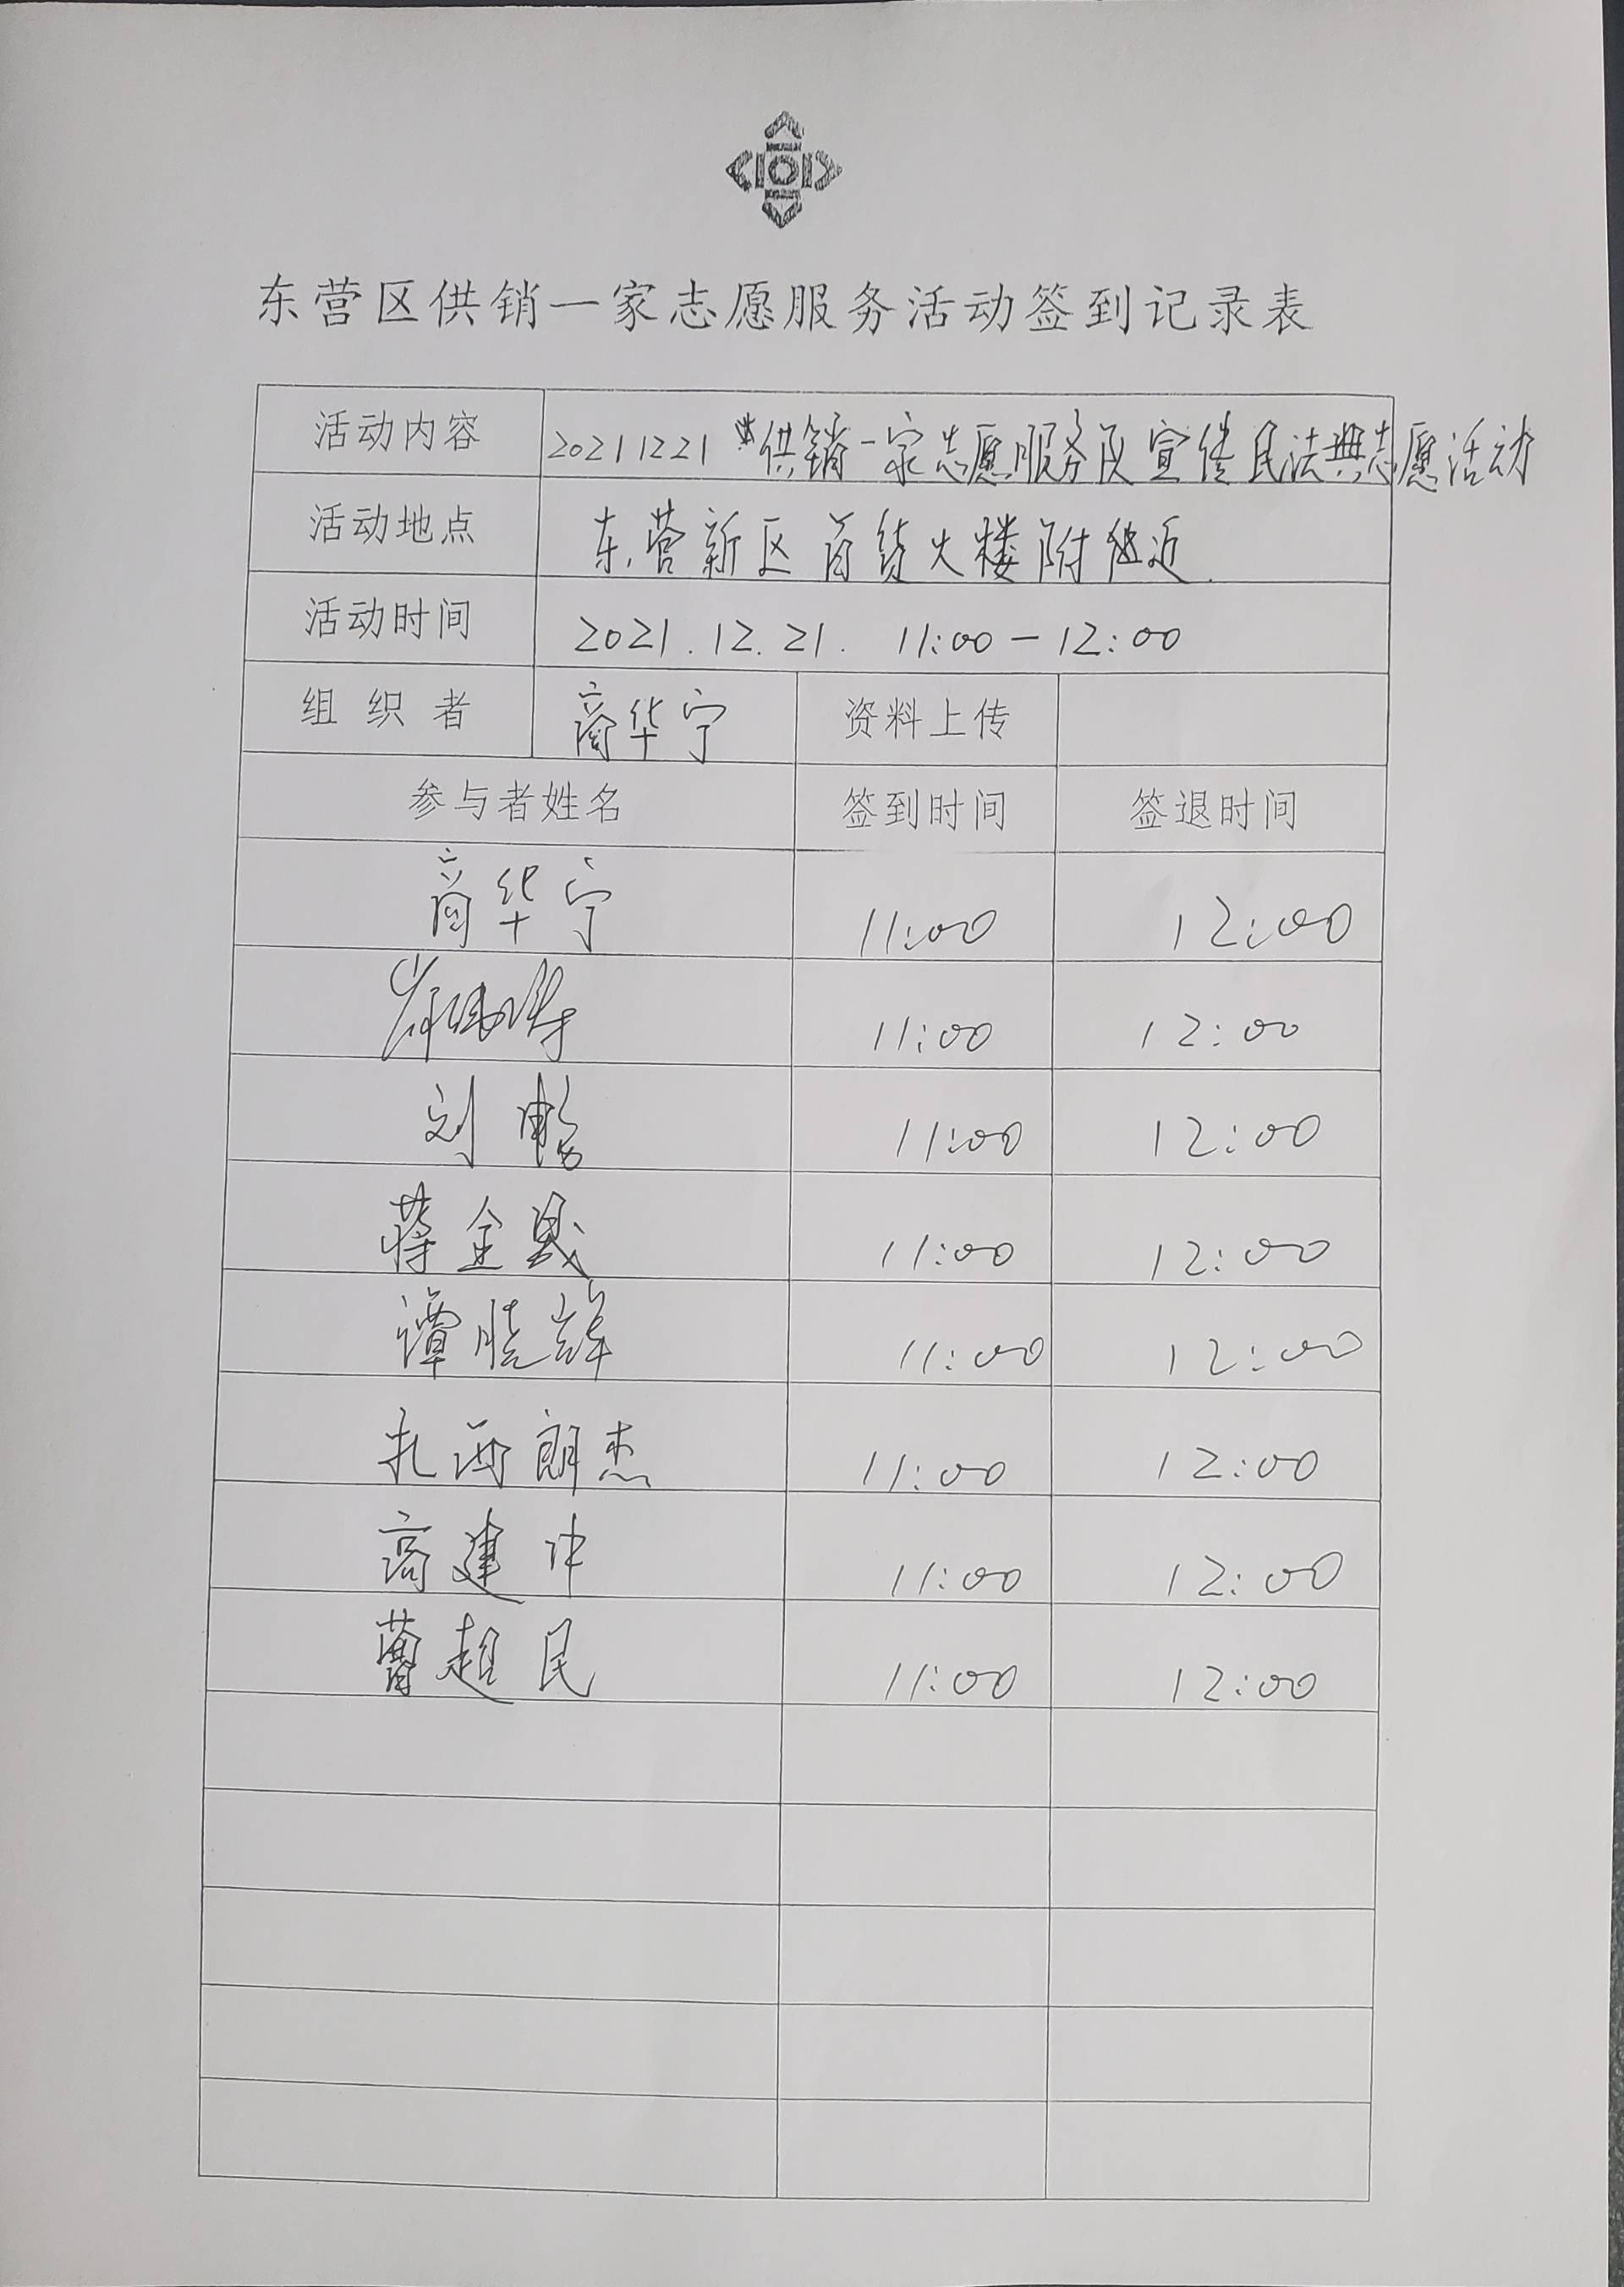 东营区供销一家志愿服务活动签到记录表
活动内容 20211221 供销一家志愿服务队宣传民法典志愿活动
活动地点 东营新区百货大楼附近
活动时间 2021.12.21. 11:00-12:00
组织者 商华宁 资料上传
参与者姓名 签到时间 签退时间
商华宁 11:00 12:00
11:00 12:00
刘鹏 11:00 12:00
蒋金 11:00 12:00
谭晓辉 11:00 12:00
扎西朗杰 11:00 12:00
高建中 11:00 12:00
曹超民 11:00 12:00